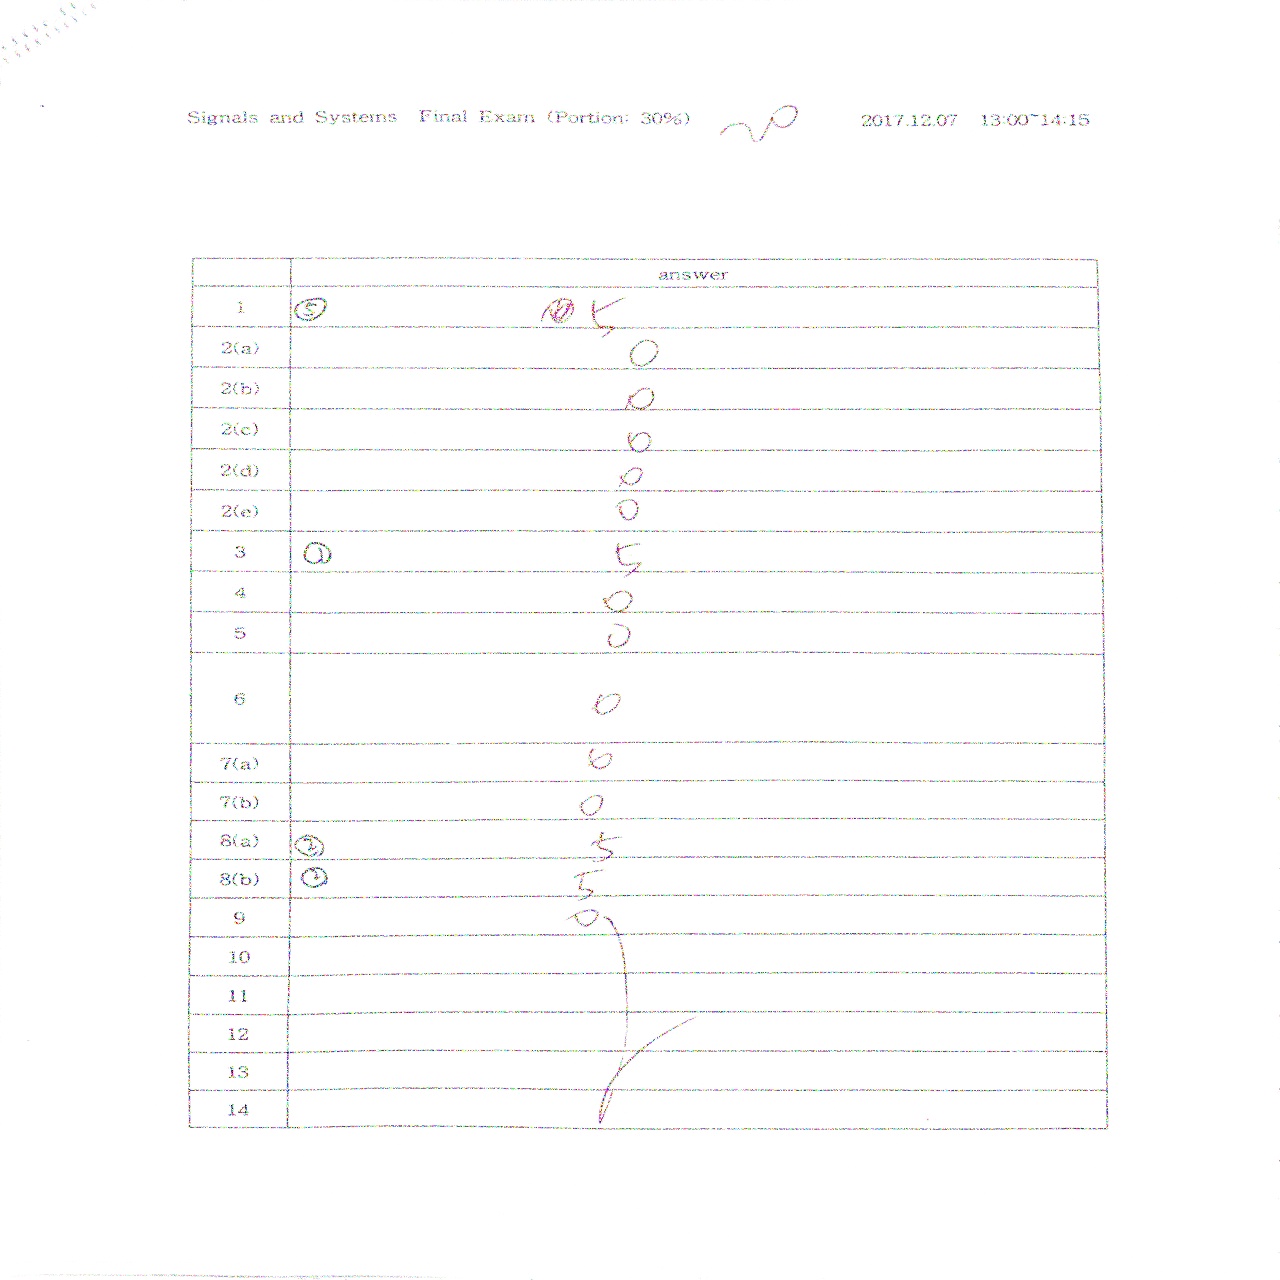 Signals and Systems Final Exam (Portion: 30%) 20 2017.12.07 13:00~14:15
answer
1 ⑤ 5
2(a) 0
2(b) 0
2(c) 0
2(d) 0
2(e) 0
3 5
4 0
5 0
6 0
7(a) 0
7(b) 0
8(a) ② 5
8(b) 5
9 0
10
11
12
13
14